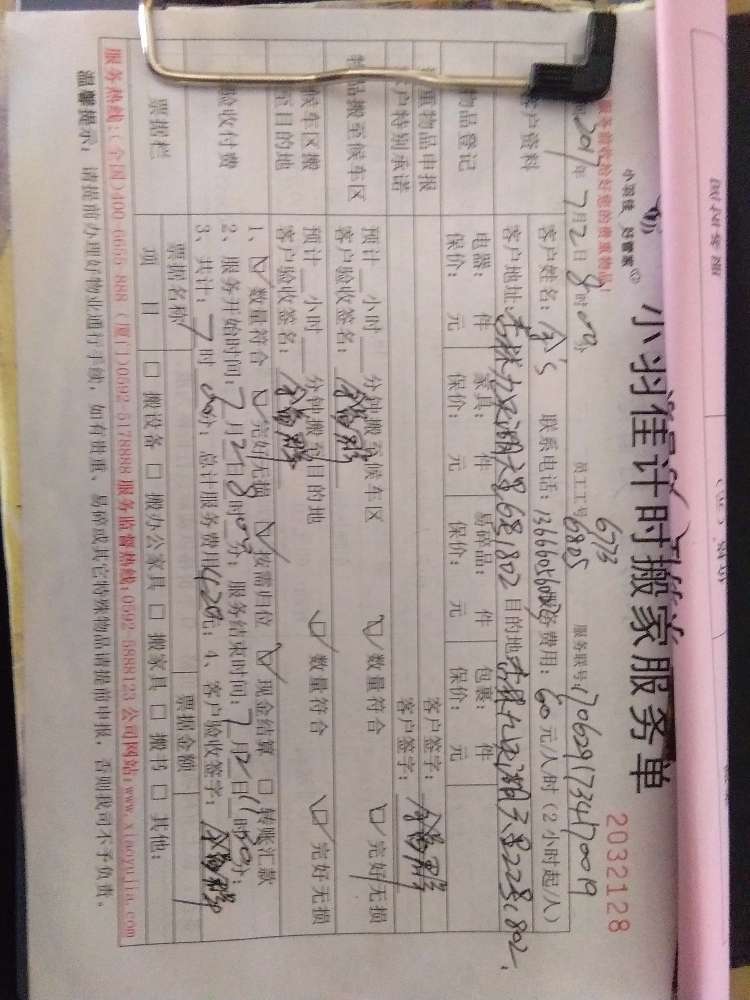 小羽佳计时搬家服务单
小羽佳 好管家
2032128
服务前收拾好您的贵重物品!
2017年7月2日8时00分 员工工号 6773 6805 服务联号
客户资料
客户姓名: 余's 联系电话: 服务费用: 60元/人时(2小时起/人)
客户地址: 目的地
物品登记
电器: 件 家具: 件 易碎品: 件 包裹: 件
保价: 元 保价: 元 保价: 元 保价: 元
重物品申报 客户签字:
客户特别承诺 客户签字:
物品搬至候车区
预计__小时__分钟搬至候车区 ☑数量符合 ☑完好无损
客户验收签名:
候车区搬至目的地
预计__小时__分钟搬至目的地 ☑数量符合 ☑完好无损
客户验收签名:
验收付费
1、☑数量符合 ☑完好无损 ☑按需归位 ☑现金结算 □转账汇款
2、服务开始时间: 7月2日8时00分; 服务结束时间: 7月2日11时30分;
3、共计: 7时00分; 总计服务费用420元; 4、客户验收签字:
票据栏
票据名称 票据金额
项 目 □搬设备 □搬办公家具 □搬家具 □搬书 □其他:
服务热线:(全国)400-6655-888 (厦门)0592-5178888 服务监督热线:0592-5888123 公司网站:www.xiaoyujia.com
温馨提示: 请提前办理好物业通行手续, 如有贵重、易碎或其它特殊物品请提前申报, 否则我司不予负责。